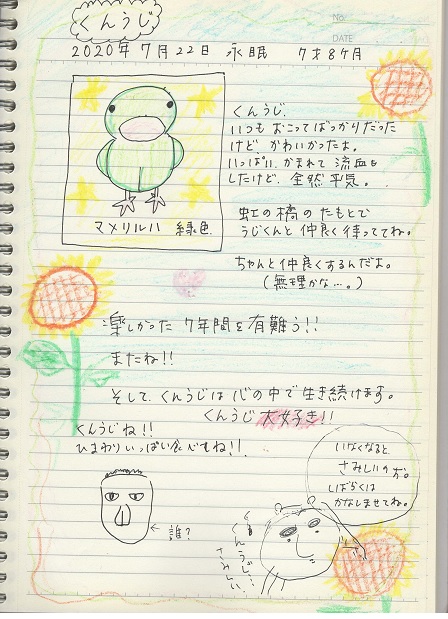 くんうじ
No.
DATE
2020年7月22日 永眠 7才8ヶ月
くんうじ.
いつも おこってばっかりだった
けど かわいかったよ。
いっぱい かまれて 流血も
したけど、全然平気。
マメリルハ 緑色
虹の橋のたもとで
うじくんと仲良く待っててね。
ちゃんと仲良くするんだよ。
(無理かな…。)
楽しかった 7年間を有難う!!
またね!!
そして、くんうじは心の中で生き続けます。
くんうじ 大好き!!
くんうじね!!
ひまわりいっぱい食べてもね!!
いなくなると
さみしいの方。
しばらくは
かなしませてね。
←誰?
くんうじ…
さみしい